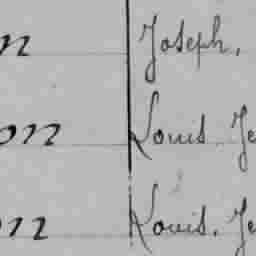 n Joseph,
on Louis Je
on Louis. Je